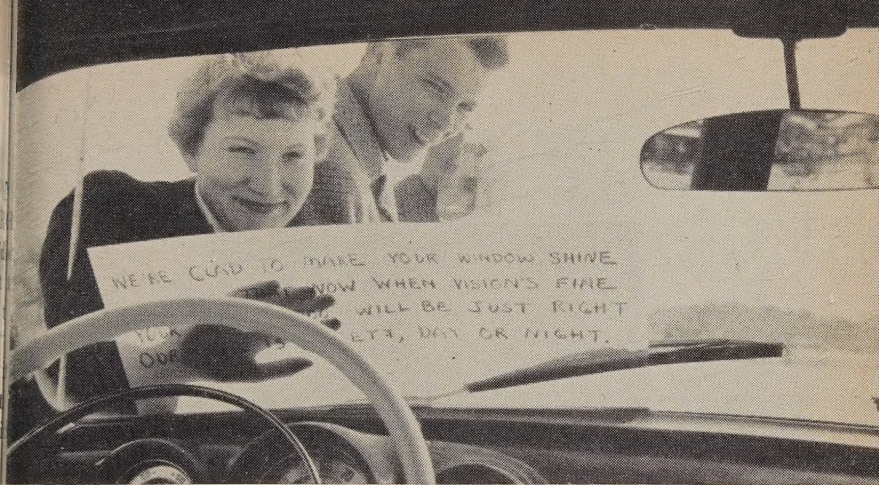 WE'RE GLAD TO MAKE YOUR WINDOW SHINE
NOW WHEN VISION'S FINE
WILL BE JUST RIGHT
YOUR DAY OR NIGHT.
OUR